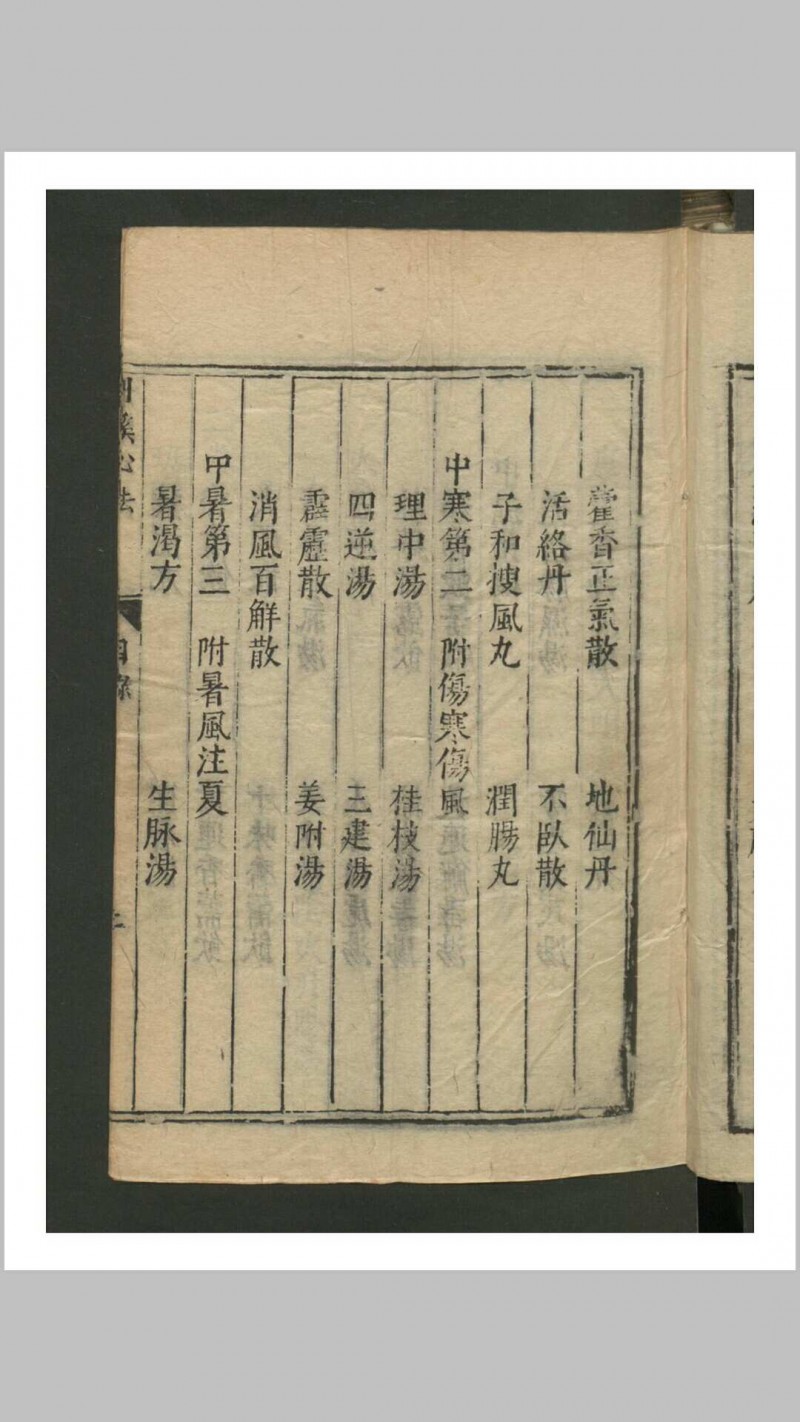 藿香正氣散　地仙丹
活絡丹　不臥散
子和搜風丸　潤腸丸
中寒第二　附傷寒傷風
理中湯　桂枝湯
四逆湯　三建湯
霹靂散　姜附湯
消風百解散
甲暑第三　附暑風注夏
暑渴方　生脉湯
溪心法　目錄